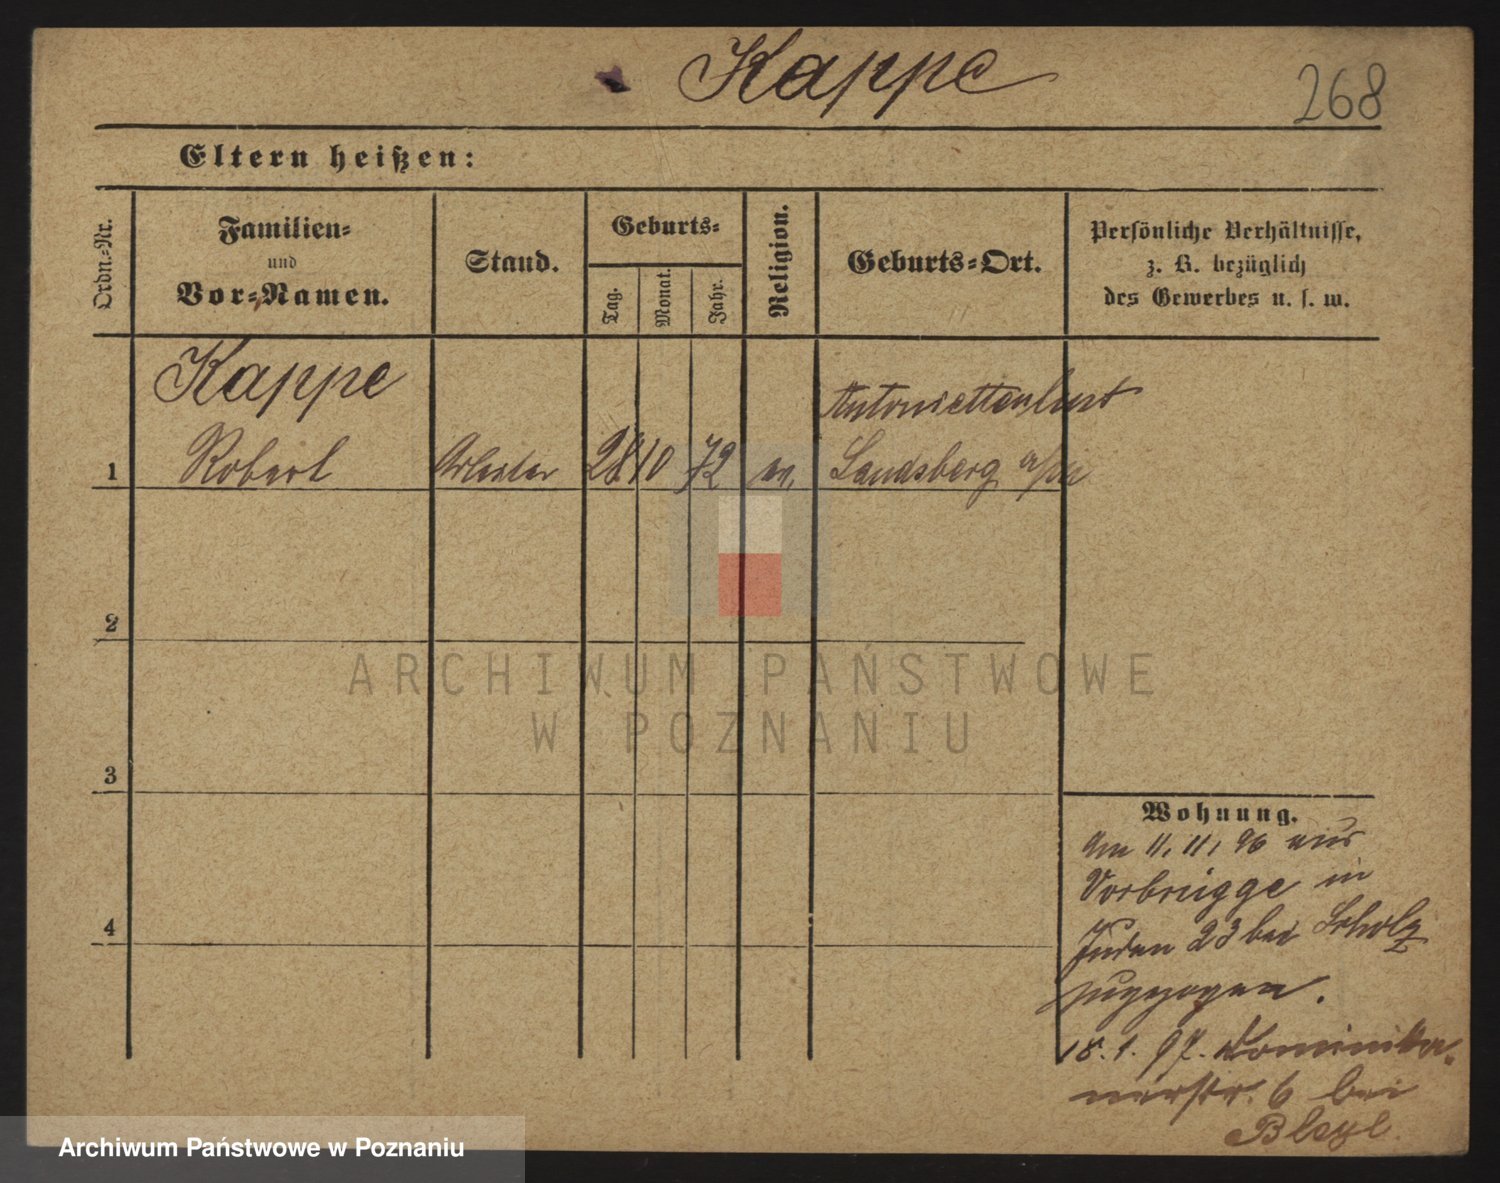 Kappe
268
Eltern heißen:
Ordn.-Nr.
Familien-
und
Vor-Namen.
Stand.
Geburts-
Tag.
Monat.
Jahr.
Religion.
Geburts-Ort.
Persönliche Verhältnisse,
z. B. bezüglich
des Gewerbes u. s. w.
Kappe
Antoniettenlust
1 Robert Arbeiter 28 10 72 ev. Landsberg a/W
2
3
4
Wohnung.
Am 11. 11. 96 aus
Vorbrügge in
Juden 23 bei Scholz
zugezogen.
18. 1. 97. Dominika-
nerstr. 6 bei
ARCHIWUM PAŃSTWOWE
W POZNANIU
Archiwum Państwowe w Poznaniu